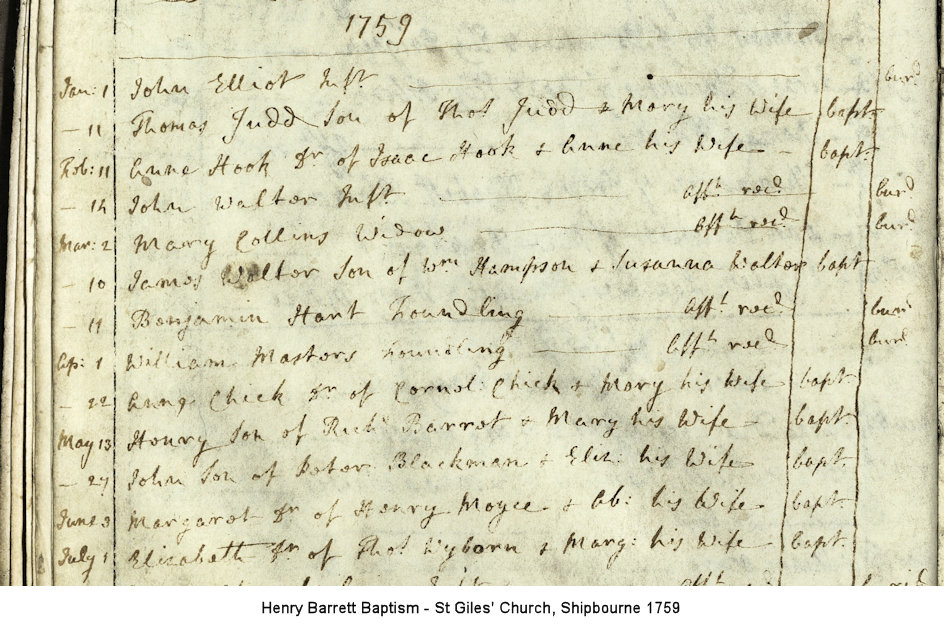 1759
Jan: 1 John Elliot Inft. bur'd
— 11 Thomas Judd Son of Thos. Judd & Mary his Wife bapt.
Feb: 11 Anne Hook Dr of Isaac Hook & Anne his Wife — bapt.
— 14 John Walter Inft. afft. rec'd bur'd
Mar: 2 Mary Collins Widow afft. rec'd bur'd
— 10 James Walter Son of Wm Hampson & Susanna Walter bapt
— 11 Benjamin Hart Foundling afft. rec'd bur'd
Ap: 1 William Masters Foundling afft. rec'd bur'd
— 22 Anne Chick Dr of Cornel: Chick & Mary his Wife bapt.
May 13 Henry Son of Richd Barret & Mary his Wife — bapt.
— 27 John Son of Peter Blackman & Eliz: his Wife bapt.
June 3 Margaret Dr of Henry Moyce & Ab: his Wife — bapt.
July 1 Elizabeth Dr of Thos Wyborn & Marg: his Wife — bapt.
Henry Barrett Baptism - St Giles' Church, Shipbourne 1759